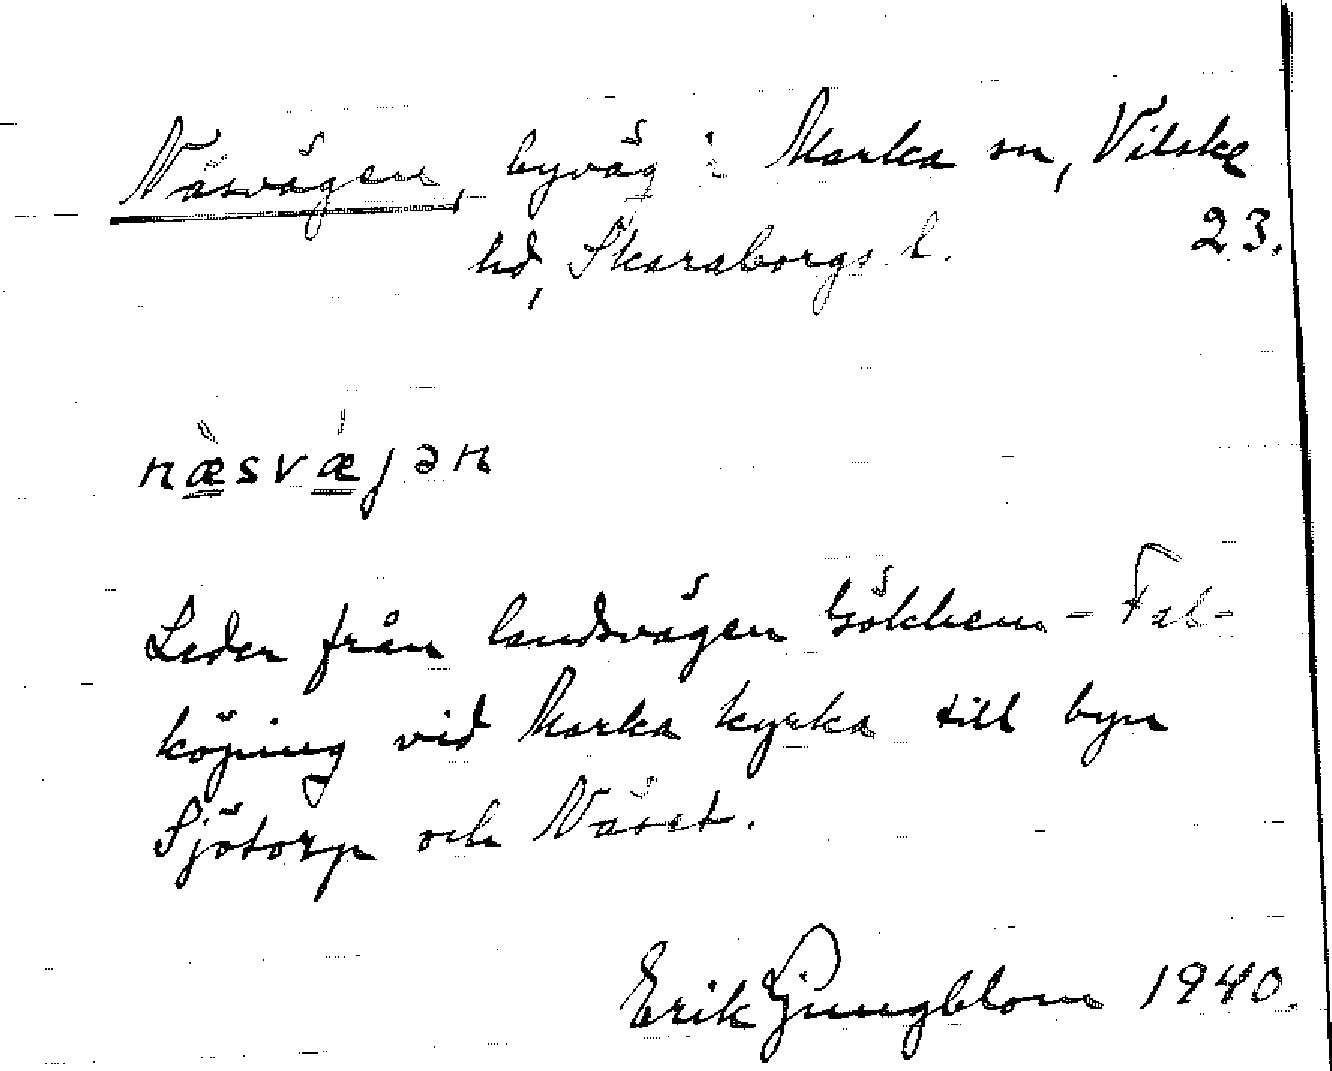 Näsvägen, byväg i Marka sn, Vilske
hd, Skaraborgs l. 23.
næ̀svǽjən
Leder från landsvägen Gökhem - Fal-
köping vid Marka kyrka till byn
Sjötorp och Näset.
Erik Ljungblom 1940.